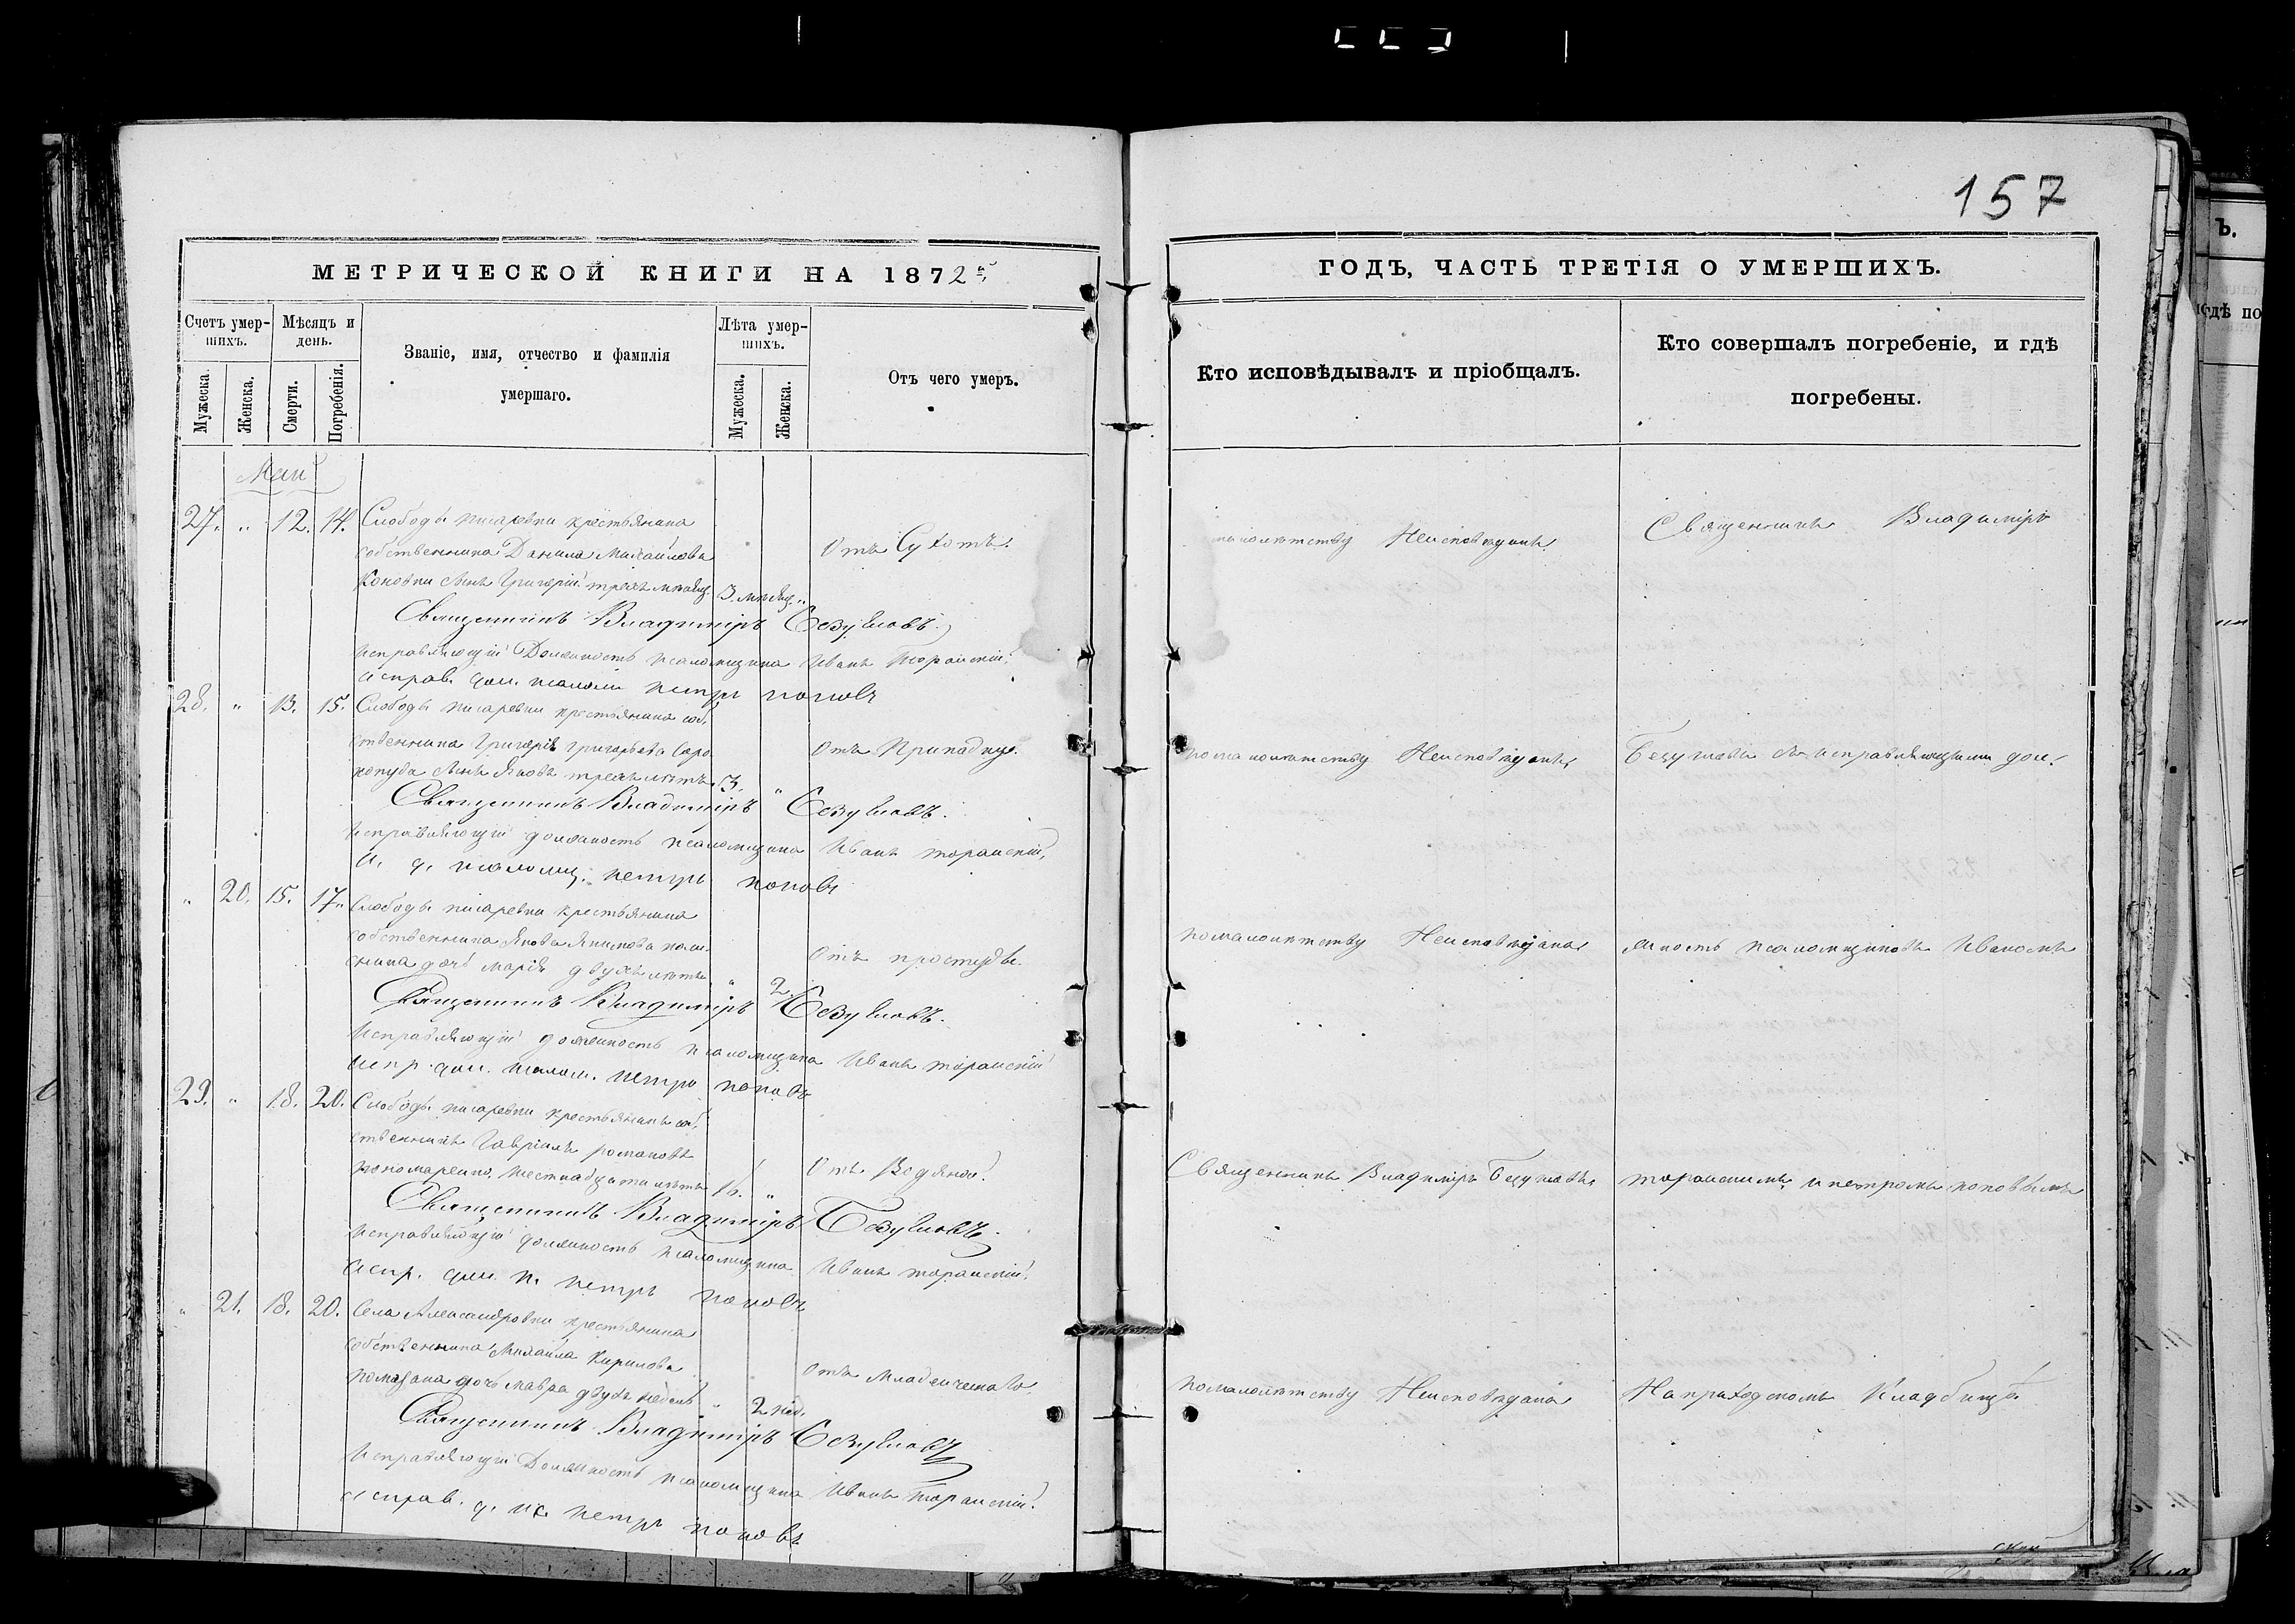 157
МЕТРИЧЕСКОЙ КНИГИ НА 1872й
ГОДЪ, ЧАСТЬ ТРЕТІЯ О УМЕРШИХЪ.
Счетъ умер-
шихъ.
Мѣсяцъ и
день.
Званіе, имя, отчество и фамилія
умершаго.
Лѣта умер-
шихъ.
Отъ чего умеръ.
Мужеска.
Женска.
Смерти.
Погребенія.
Мужеска.
Женска.
Кто исповѣдывалъ и пріобщалъ.
Кто совершалъ погребеніе, и гдѣ
погребены.
Май
27. " 12. 14. Слободы писаревки крестьянина
собственника Данила Михайлова
сынъ Григорій трехъ 3.
Отъ Сухотъ.
малолѣтству Неисповѣданъ.
Священникъ Владиміръ
Священникъ Владиміръ Безугловъ.
исправляющій Должность псаломщика Иванъ
исправ. дол. псалом. петръ поповъ
28. " 13. 15. Слободы писаревки крестьянина соб-
ственника Григорія григорьева Соро-
сынъ Яковъ трехъ лѣтъ 3. "
Отъ Припадку.
помалолѣтству Неисповѣданъ
Безугловъ съ исправляющими дол-
Священникъ Владиміръ Безугловъ.
исправляющій должность псаломщика Иванъ
И. д. псаломщ. петръ поповъ
" 20. 15. 17. Слободы писаревки крестьянина
собственника Якова
дочь марія двухъ лѣтъ " 2.
Отъ простуды.
помалолѣтству Неисповѣдана
жность псаломщиковъ Иваномъ
Священникъ Владиміръ Безугловъ.
Исправляющій должность псаломщика Иванъ
испр. дол. псалом. петръ поповъ
29. " 18. 20. Слободы писаревки крестьянинъ соб-
ственникъ Гавріилъ романовъ
пономаренко, шестнадцати лѣтъ 16. "
Отъ Водяной.
Священникъ Владиміръ Безугловъ
и петромъ поповымъ
Священникъ Владиміръ Безугловъ.
исправляющій должность псаломщика Иванъ
испр. дол. п. петръ поповъ
" 21. 18. 20. Села Александровки крестьянина
собственника Михаила Кирилова
дочь мавра двухъ недель " 2 нед.
Отъ Младенческаго.
помалолѣтству Неисповѣдана
На приходскомъ Кладбищѣ.
Священникъ Владиміръ Безугловъ
Исправляющій Должность псаломщика Иванъ
исправ. д. пс. петръ поповъ